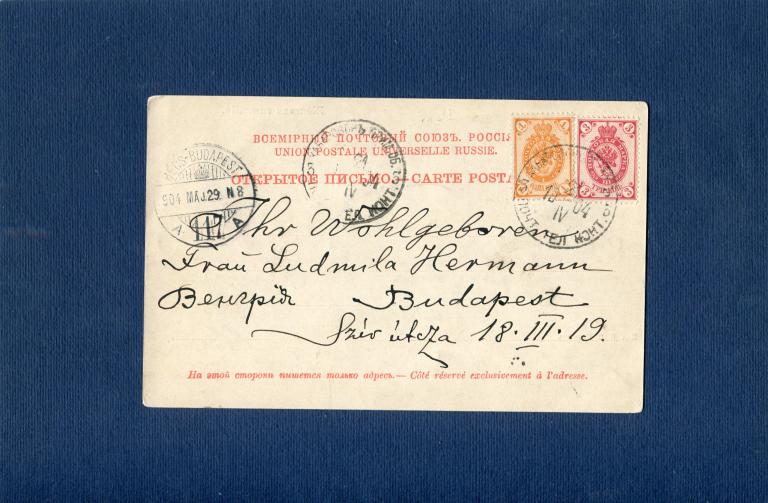 ВСЕМІРНЫЙ ПОЧТОВЫЙ СОЮЗЪ. РОССІЯ
UNION POSTALE UNIVERSELLE RUSSIE.
ОТКРЫТОЕ ПИСЬМО.—CARTE POSTA
BUDAPEST
904 MÁJ. 29. N 8
A 117 A
IV 04
1
3
Ihr Wohlgeboren
Frau Ludmila Hermann
Венгрія Budapest
Szív útcza 18. III. 19.
На этой сторонѣ пишется только адресъ.— Côté réservé exclusivement à l'adresse.